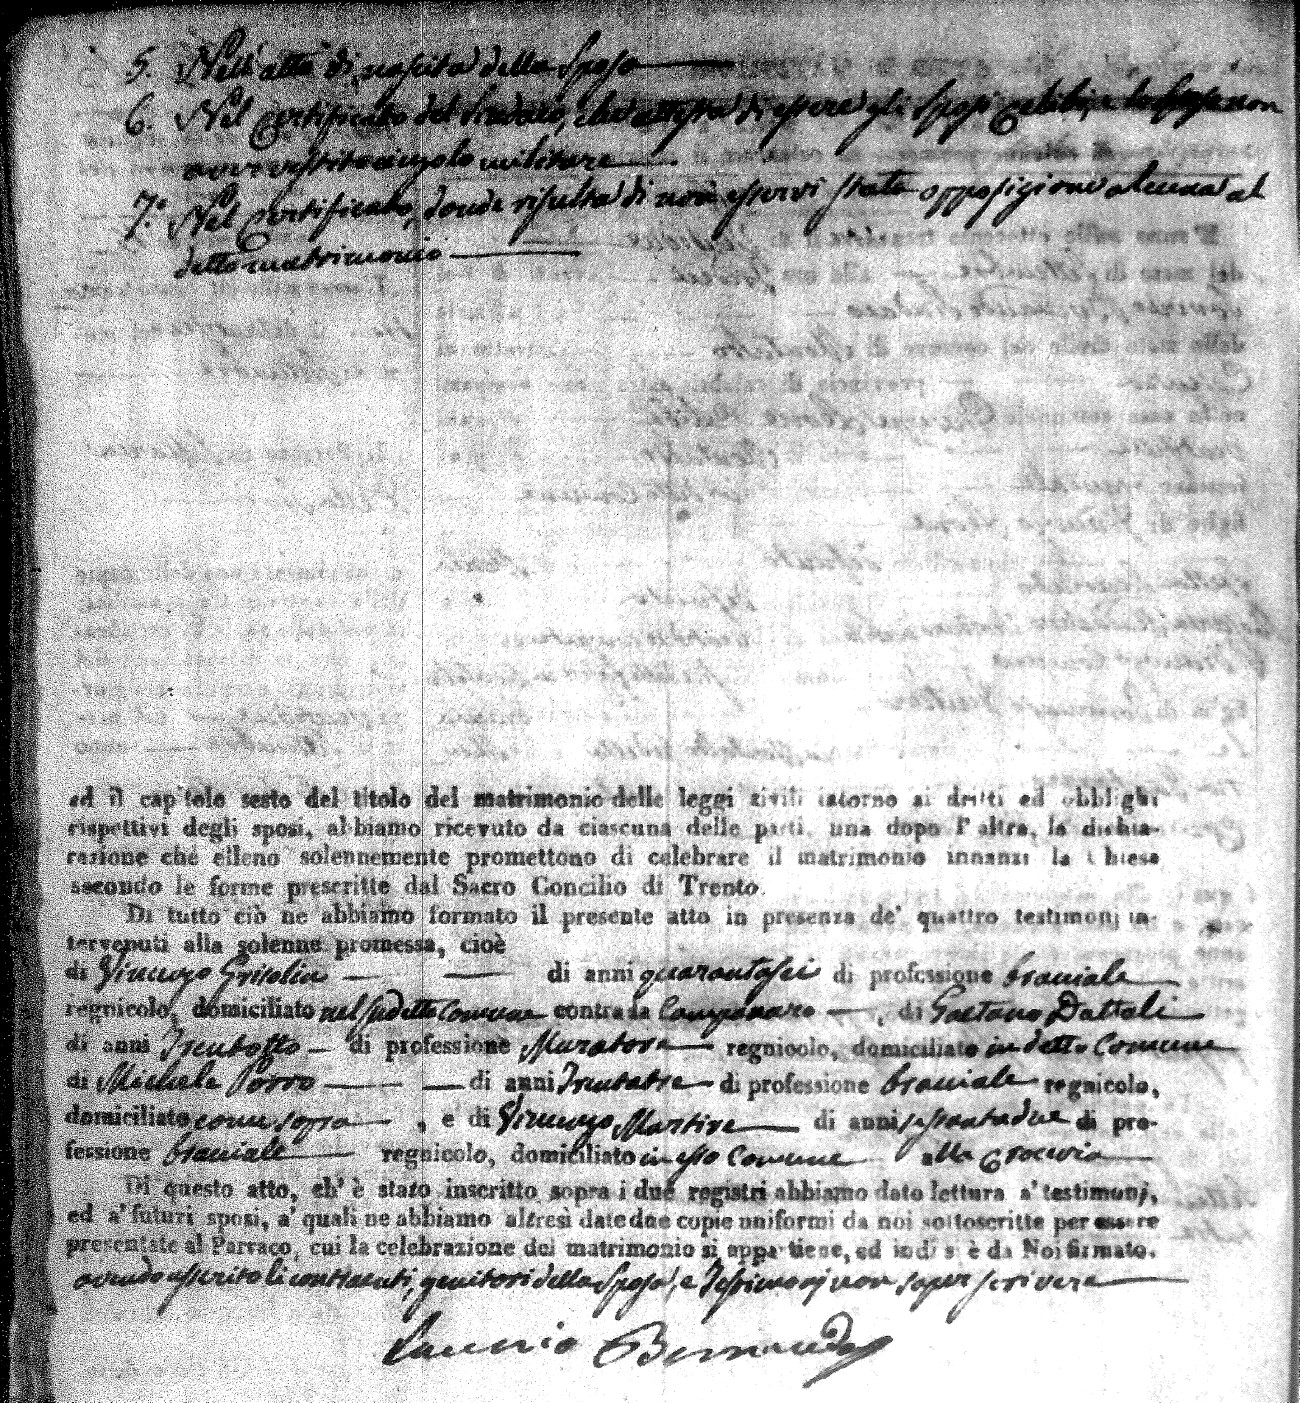 5. Nell'atto di nascita della Sposa
6. Nel Certificato del Sindaco, che attesta di essere gli Sposi celibi, e lo Sposo non
aver vestito cingolo militare
7.° Nel Certificato, donde risulta di non esservi stata opposizione alcuna al
detto matrimonio
ed il capitolo sesto del titolo del matrimonio delle leggi civili intorno ai dritti ed obblighi
rispettivi degli sposi, abbiamo ricevuto da ciascuna delle parti, una dopo l'altra, la dichia-
razione che eileno solennemente promettono di celebrare il matrimonio innanzi la Chiesa
secondo le forme prescritte dal Sacro Concilio di Trento.
Di tutto ciò ne abbiamo formato il presente atto in presenza de' quattro testimonj in-
tervenuti alla solenne promessa, cioè
di Vincenzo Grisolia di anni quarantasei di professione bracciale
regnicolo, domiciliato nel sudetto Comune contrada Campanaro, di Gaetano Dattoli
di anni Trentotto di professione Muratore regnicolo, domiciliato in detto Comune
di Michele Porro di anni Trentatre di professione bracciale regnicolo,
domiciliato come sopra, e di Vincenzo Martire di anni sessantadue di pro-
fessione bracciale regnicolo, domiciliato in esso Comune alla Crocevia
Di questo atto, ch'è stato inscritto sopra i due registri abbiamo dato lettura a' testimonj,
ed a' futuri sposi, a' quali ne abbiamo altresì date due copie uniformi da noi sottoscritte per essere
presentate al Parroco, cui la celebrazione del matrimonio si appartiene, ed indi s'è da Noi firmato.
avendo asserito li contraenti, genitori della Sposa, e Testimonj non saper scrivere